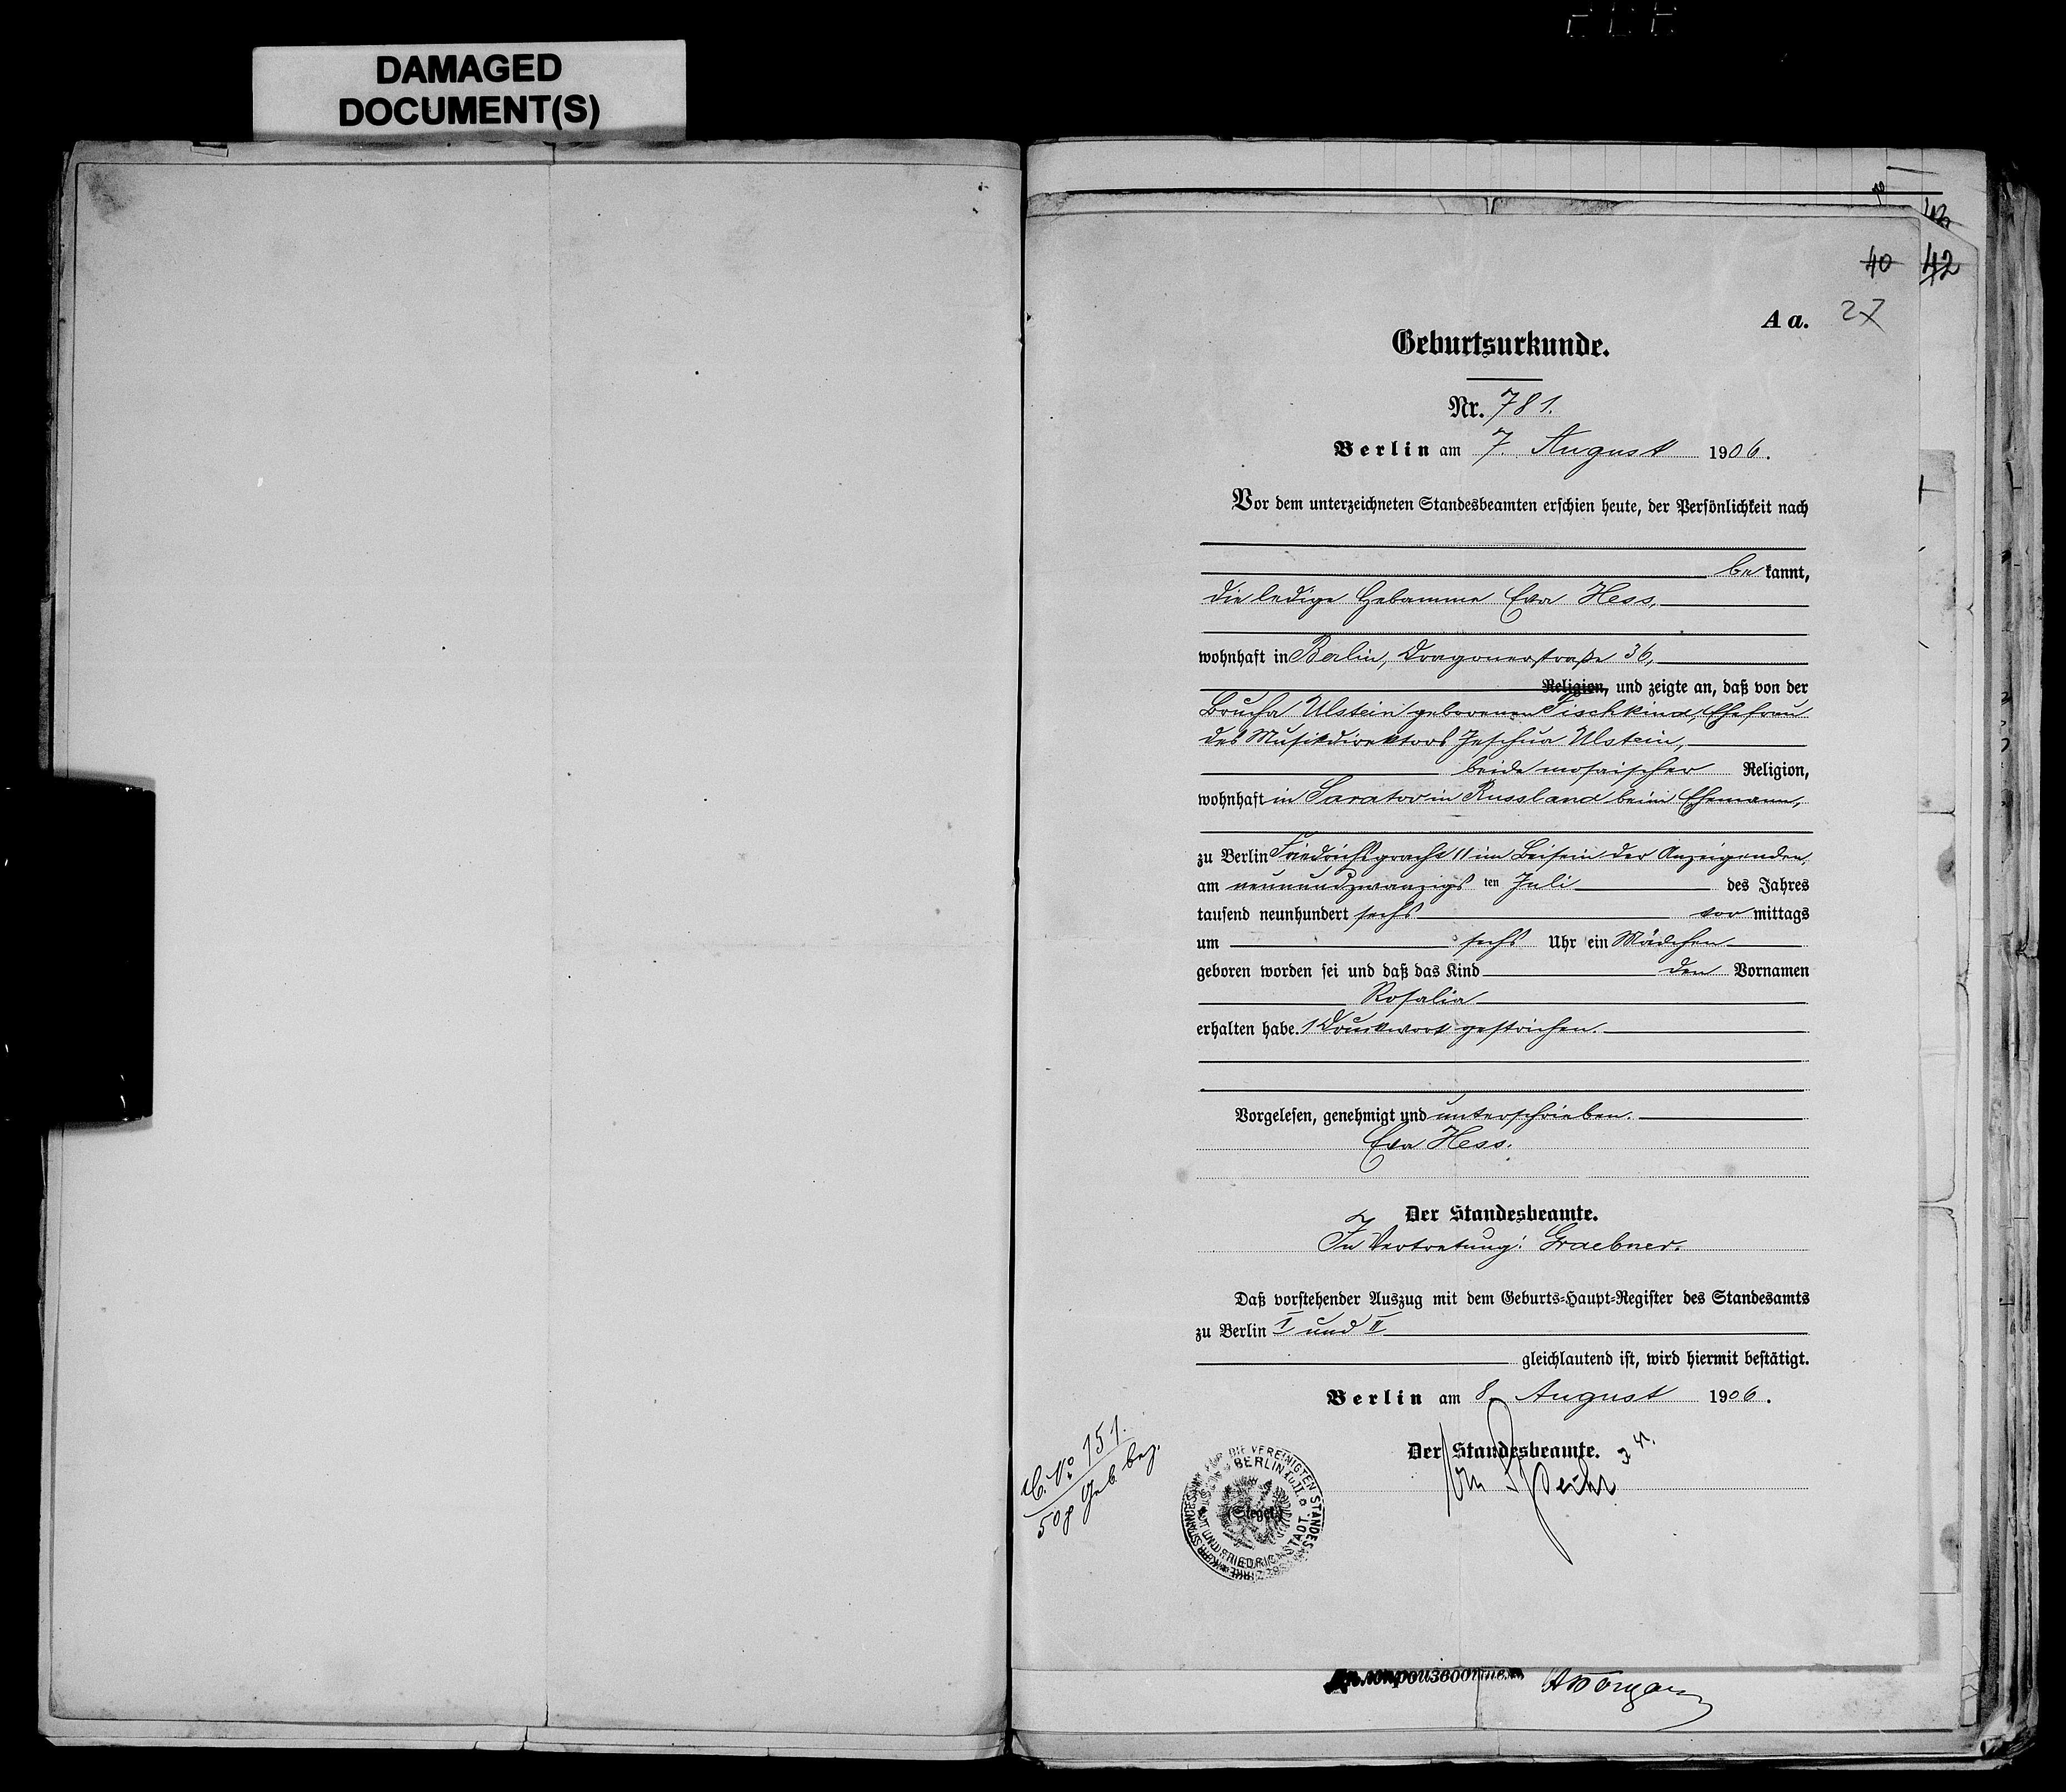 DAMAGED
DOCUMENT(S)
42
40 42
A a. 27
Geburtsurkunde.
Nr. 781.
Berlin am 7. August 1906.
Vor dem unterzeichneten Standesbeamten erschien heute, der Persönlichkeit nach
be kannt,
die ledige Hebamme Eva Hess,
wohnhaft in Berlin, Dragonerstraße 36,
Religion, und zeigte an, daß von der
Brucha Ulstein geborenen Fischkind, Ehefrau
des Musikdirektors Jeschua Ulstein,
beide mosaischer Religion,
wohnhaft in Saratov in Russland beim Ehemann,
zu Berlin Friedrichsgracht 11 im Beisein der Anzeigenden,
am neunundzwanzigs ten Juli des Jahres
tausend neunhundert sechs vor mittags
um sechs Uhr ein Mädchen
geboren worden sei und daß das Kind den Vornamen
Rosalia
erhalten habe. 1 Druckwort gestrichen.
Vorgelesen, genehmigt und unterschrieben.
Eva Hess.
Der Standesbeamte.
In Vertretung: Graebner.
Daß vorstehender Auszug mit dem Geburts-Haupt-Register des Standesamts
zu Berlin I und II
gleichlautend ist, wird hiermit bestätigt.
Berlin am 8. August 1906.
Der Standesbeamte.
C. No 151.
50 ₰ Geb. bez.
FÜR DIE VEREINIGTEN STANDES-
BERLIN I u. II
(Siegel)
UND FRIEDRICHSTADT